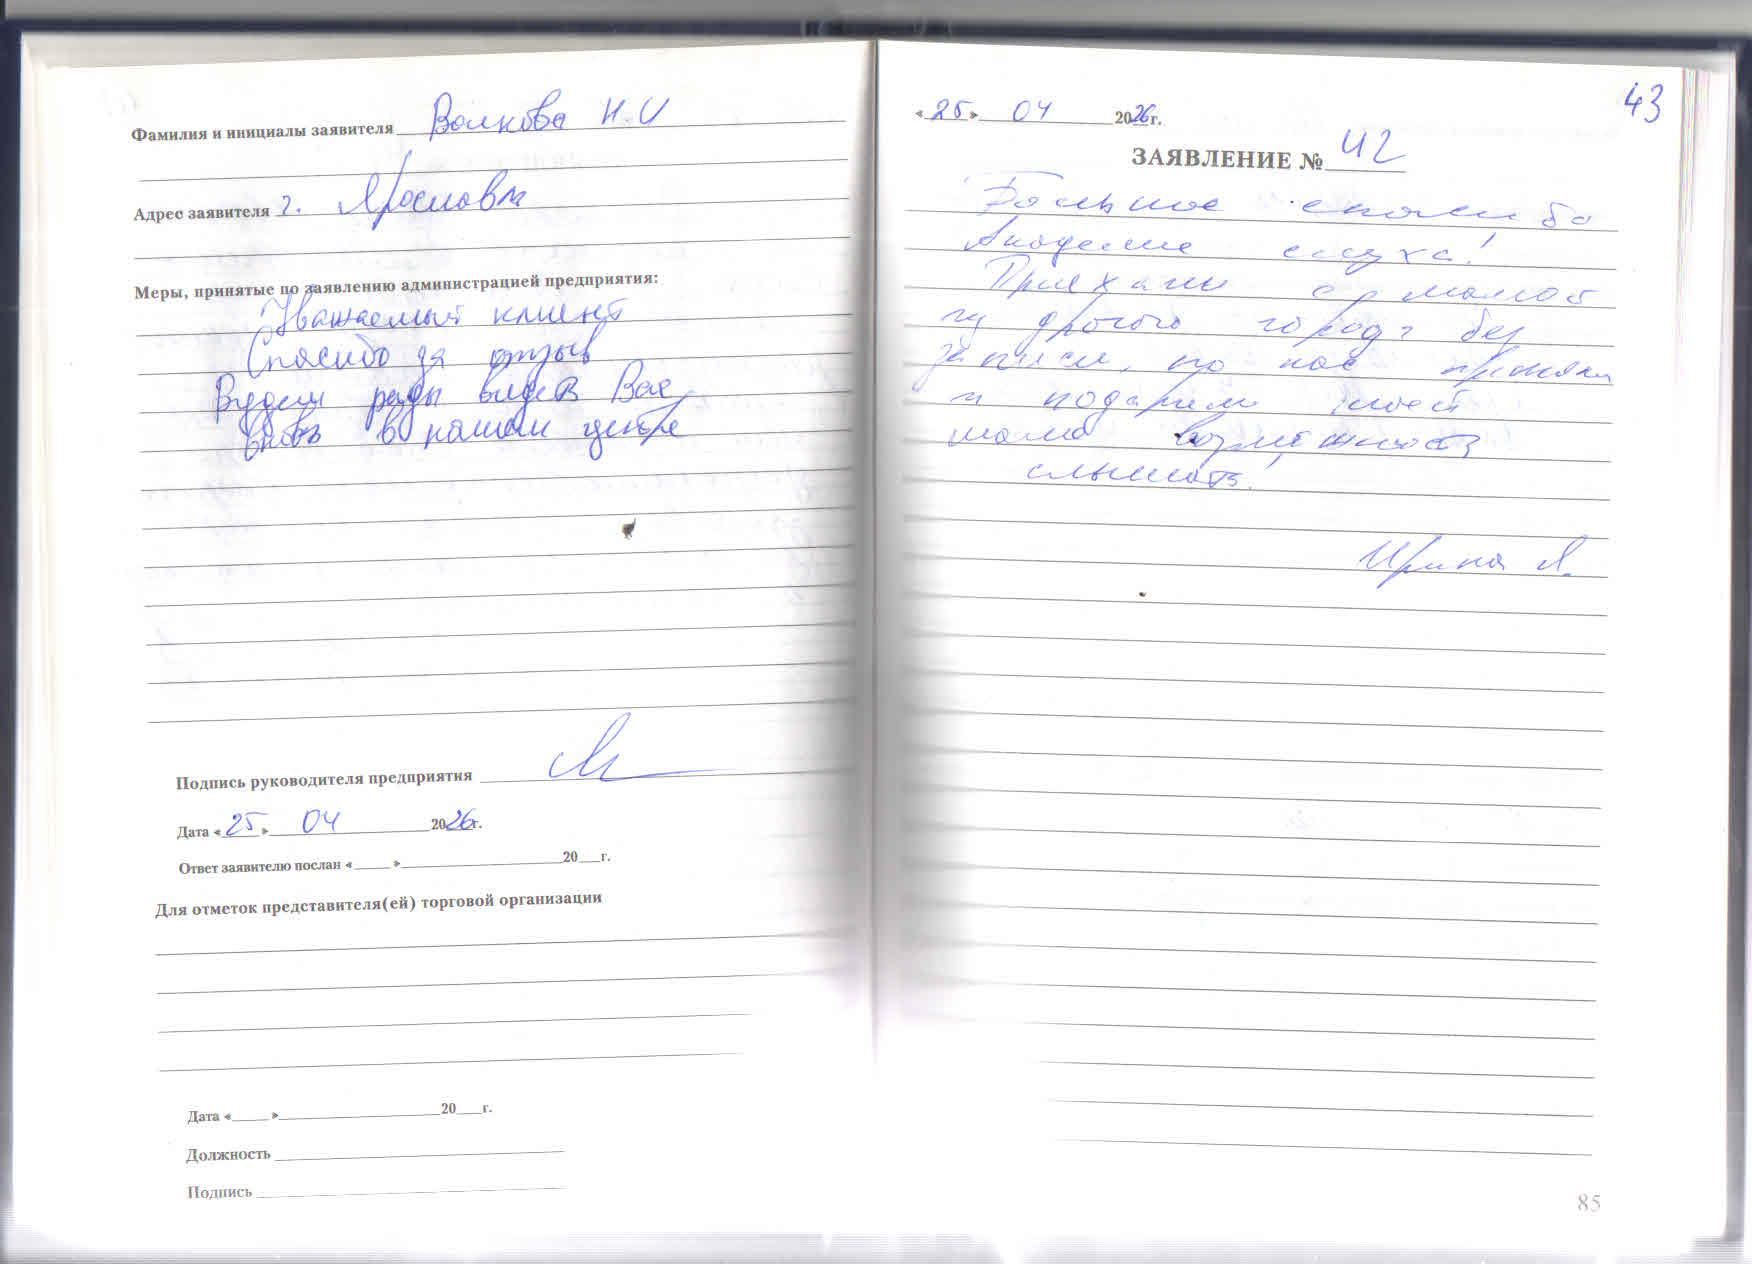 Фамилия и инициалы заявителя Волкова Н.И
Адрес заявителя г. Ярославль
Меры, принятые по заявлению администрацией предприятия:
Уважаемый клиент
Спасибо за отзыв
Будем рады видеть Вас
вновь в нашем центре
Подпись руководителя предприятия
Дата «25» 04 2026г.
Ответ заявителю послан «    » 20   г.
Для отметок представителя(ей) торговой организации
Дата «    » 20   г.
Должность
Подпись
43
«25» 04 2026г.
ЗАЯВЛЕНИЕ № 42
Большое спасибо
Академие слуха!
Приехали с мамой
из другого города без
записи, но нас приняли
и подарили моей
маме возможность
слышать!
Ирина А.
85